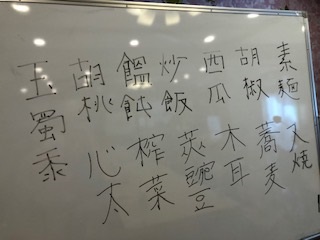 素麺 叉焼
胡椒 蕎麦
西瓜 木耳
炒飯 莢豌豆
饂飩 榨菜
胡桃 心太
玉蜀黍